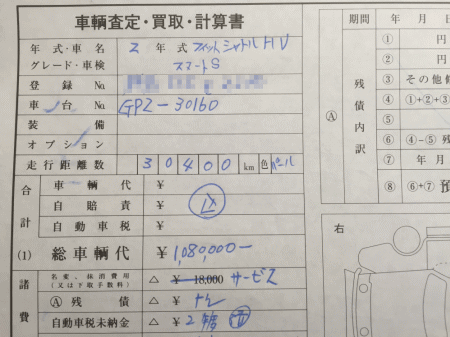 車輌査定・買取・計算書
年式・車名 2年式 フィットシャトルHV
グレード・車検 スマートS
登録No.
車台No. GP2-30160
装備
オプション
走行距離数 30400km 色 パール
合計
車輌代 ¥
自賠責 ¥
自動車税 ¥
(1) 総車輌代 ¥1,080,000-
諸費
名変、抹消費用(又は下取手数料) △ ¥18,000 サービス
Ⓐ残債 △ ¥
自動車税未納金 △ ¥
Ⓐ
残債内訳
期間 年 月 日
① 円
② 円
③ その他
④ ①+②+③
⑤
⑥ ④-⑤ 残
⑦ 年 月
⑧ ⑥+⑦
右